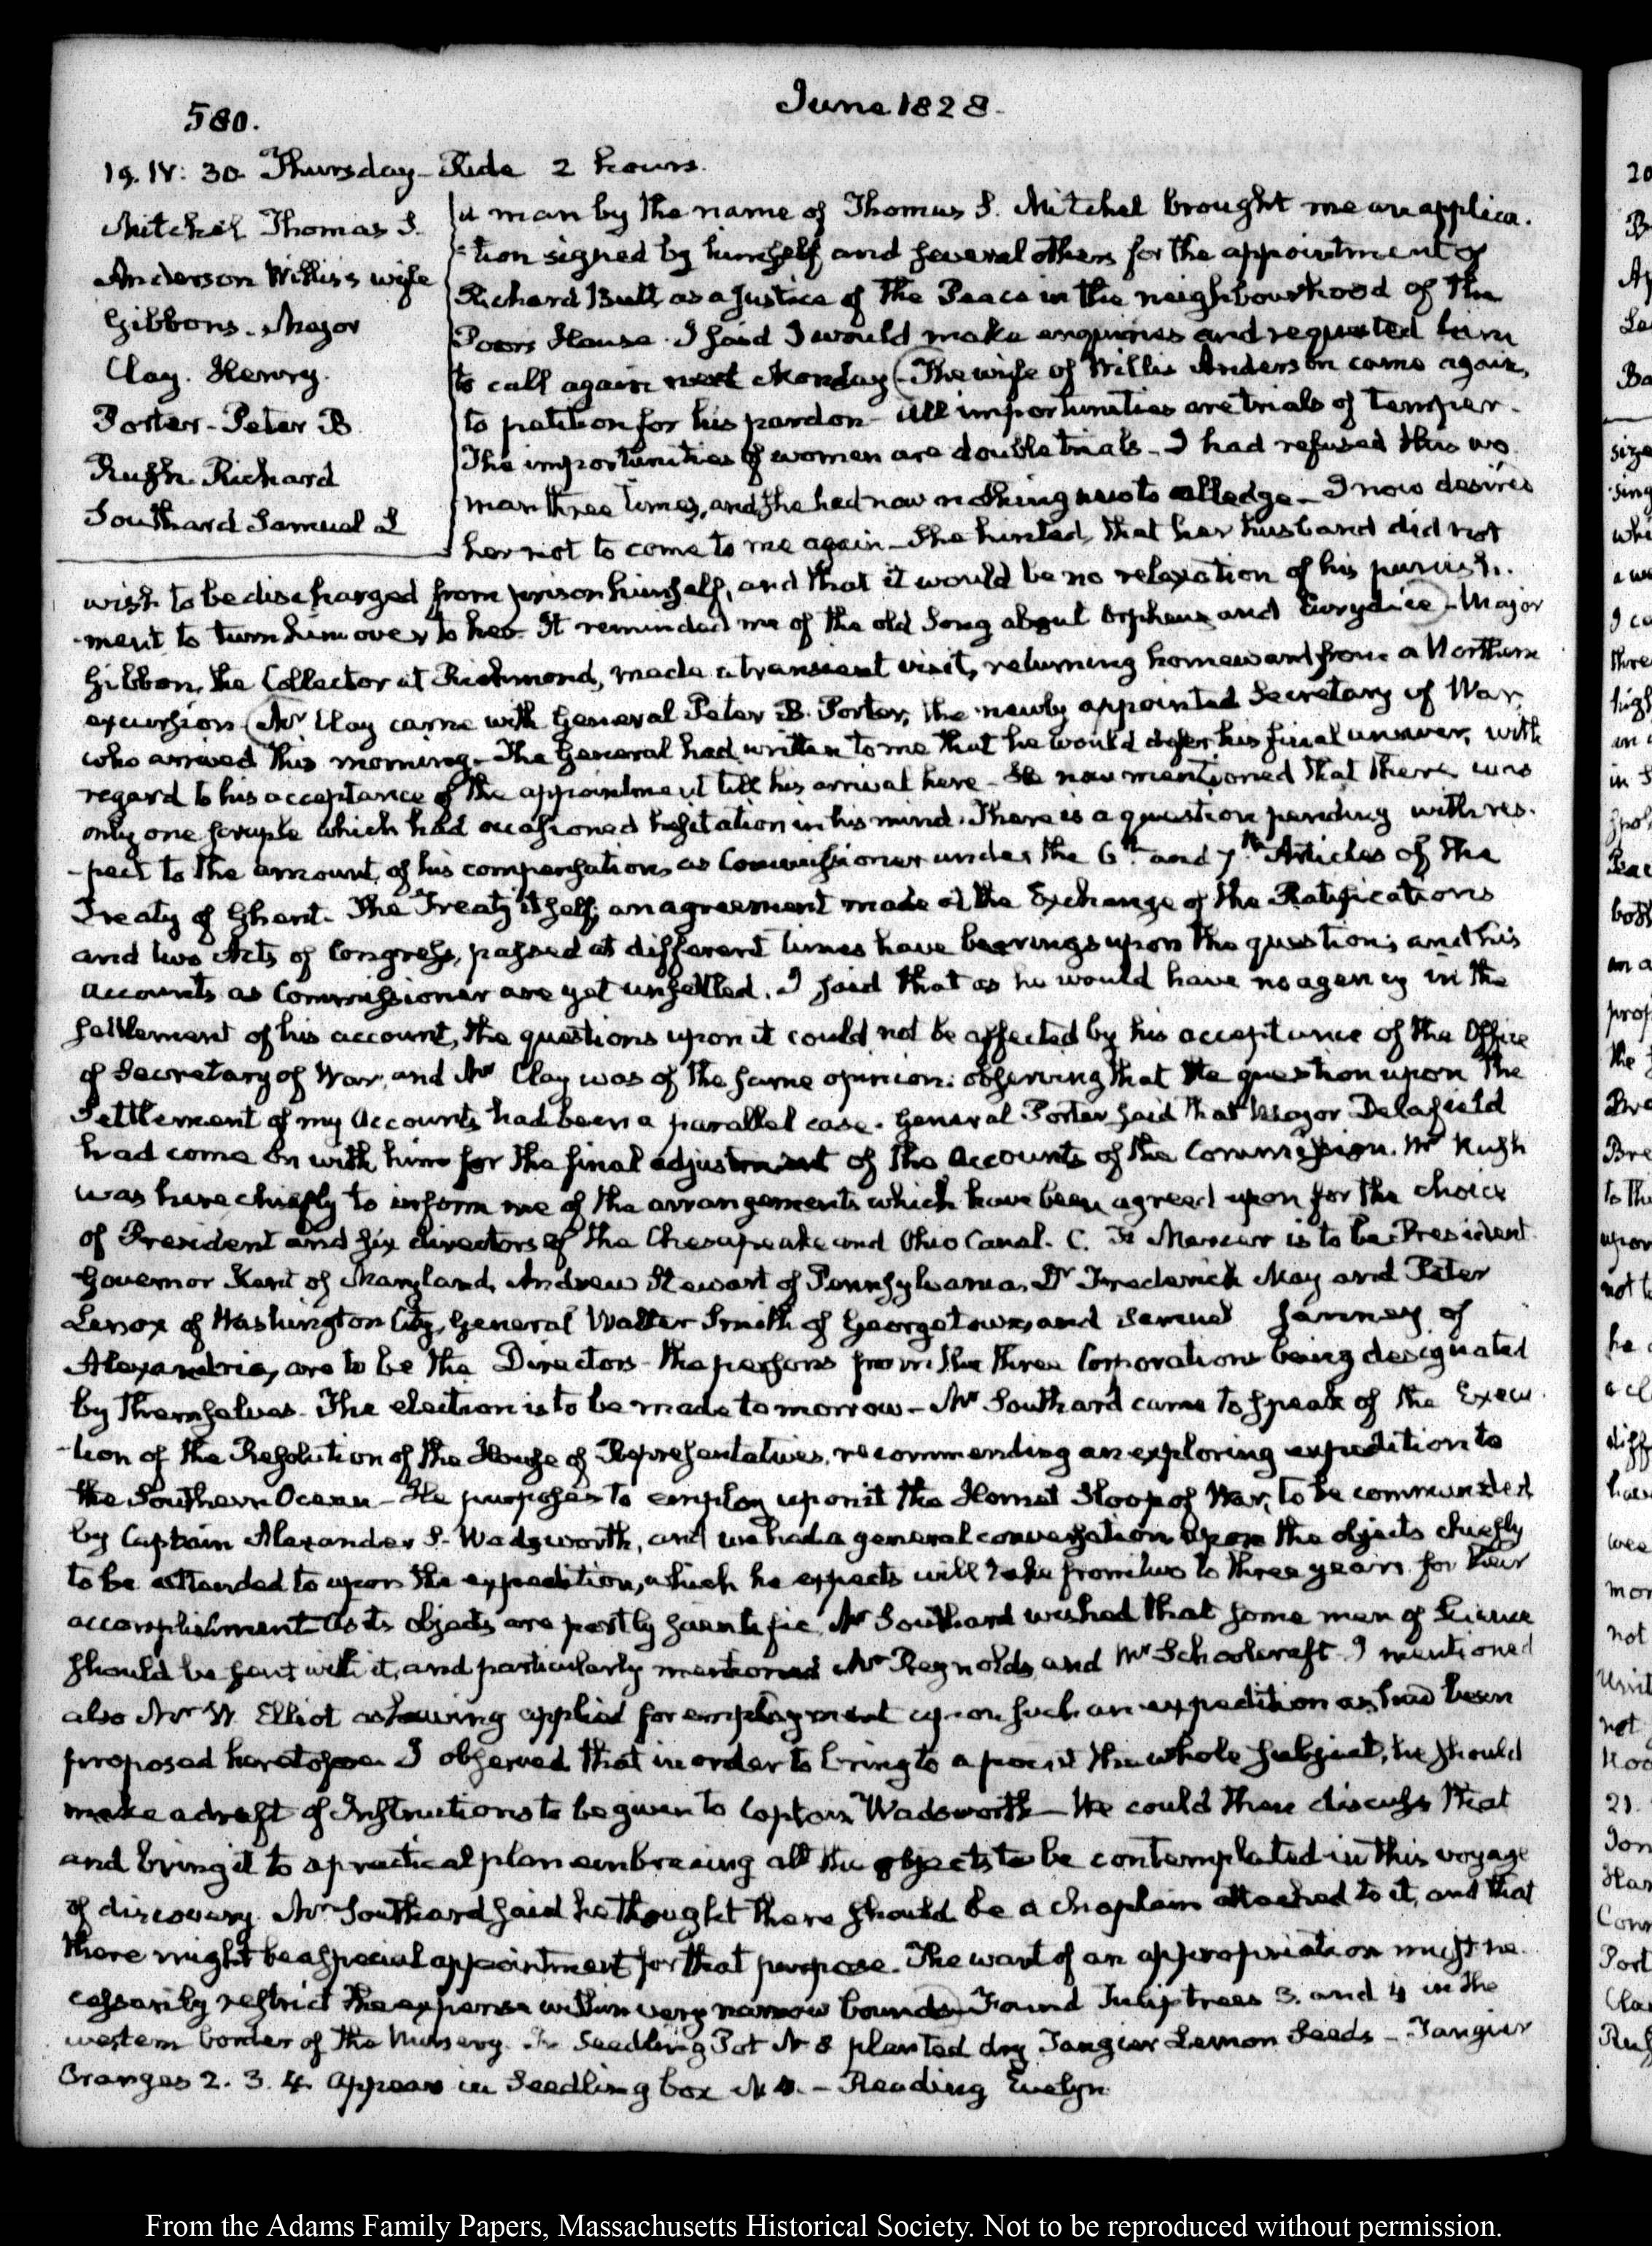 580.
June 1828.
19. IV: 30. Thursday- Ride 2 hours.
Mitchel Thomas S.
Anderson Willis's wife
Gibbons. Major
Clay. Henry.
Porter- Peter B.
Rush. Richard
Southard Samuel L
a man by the name of Thomas S. Mitchel brought me an applica.
-tion signed by himself, and several others for the appointment of
Richard Butt as a Justice of the Peace in the neighbourhood of the
Poors House. I said I would make enquiries and requested him
to call again next Monday (The wife of Willis Anderson came again,
to petition for his pardon- All importunities are trials of temper-
The importunities of women are double trials- I had refused this wo
man three times, and she had now nothing new to alledge- I now desired
her not to come to me again- She hinted, that her husband did not
wish to be discharged from prison himself, and that it would be no relaxation of his punish.
-ment to turn him over to her- It reminded me of the old Song about Orpheus and Eurydice)- Major
Gibbon, the Collector at Richmond, made a transient visit, returning homeward from a Northern
excursion (Mr Clay came with General Peter B. Porter, the newly appointed Secretary of War,
who arrived this morning- The General had written to me that he would defer his final answer, with
regard to his acceptance of the appointment till his arrival here- He now mentioned that there was
only one scruple which had occasioned hesitation in his mind. There is a question pending with res-
-pect to the amount, of his compensation, as Commissioner under the 6th and 7th Articles of the
Treaty of Ghent- The Treaty itself, an agreement made at the Exchange of the Ratifications
and two Acts of Congress, passed at different times have bearings upon the question; and his
accounts as Commissioner are yet unsettled. I said that as he would have no agency in the
settlement of his account, the questions upon it could not be affected by his acceptance of the Office
of Secretary of War, and Mr Clay was of the same opinion: observing that the question upon the
Settlement of my Accounts had been a parallel case. General Porter said that Major Delafield
had come on with him for the final adjustment of the Accounts of the Commission. Mr Rush
was here chiefly to inform me of the arrangements which have been agreed upon for the choice
of President and six directors of the Chesapeake and Ohio Canal. C. F. Mercer is to be President.
Governor Kent of Maryland, Andrew Stewart of Pennsylvania, Dr Frederick May and Peter
Lenox of Washington City, General Walter Smith of Georgetown, and Samuel Janney of
Alexandria, are to be the Directors- the persons from the three Corporations being designated
by themselves- The election is to be made tomorrow- Mr Southard came to speak of the Execu
-tion of the Resolution of the House of Representatives, recommending an exploring expedition to
the Southern Ocean- He purposes to employ upon it the Hornet Sloop of War, to be commanded
by Captain Alexander S. Wadsworth, and we had a general conversation upon the objects chiefly
to be attended to upon the expedition, which he expects will take from two to three years for their
accomplishment- As its objects are partly scientific, Mr Southard wished that some men of Science
should be sent with it, and particularly mentioned Mr Reynolds, and Mr Schoolcraft- I mentioned
also Mr W. Elliot as having applied for employment upon such an expedition as had been
proposed heretofore. I observed that in order to bring to a point the whole subject, he should
make a draft of Instructions to be given to Captain Wadsworth- We could then discuss that
and bring it to a practical plan embracing all the objects to be contemplated in this voyage
of discovery. Mr Southard said he thought there should be a chaplain attached to it, and that
there might be a special appointment for that purpose. The want of an appropriation must ne
cessarily restrict the expense within very narrow bounds) Found Tulip trees 3. and 4 in the
western border of the Nursery. In Seedling Pot N 8 planted dry Tangier Lemon Seeds- Tangier
Oranges 2. 3. 4. appear in Seedling box N 4.- Reading Evelyn
From the Adams Family Papers, Massachusetts Historical Society. Not to be reproduced without permission.